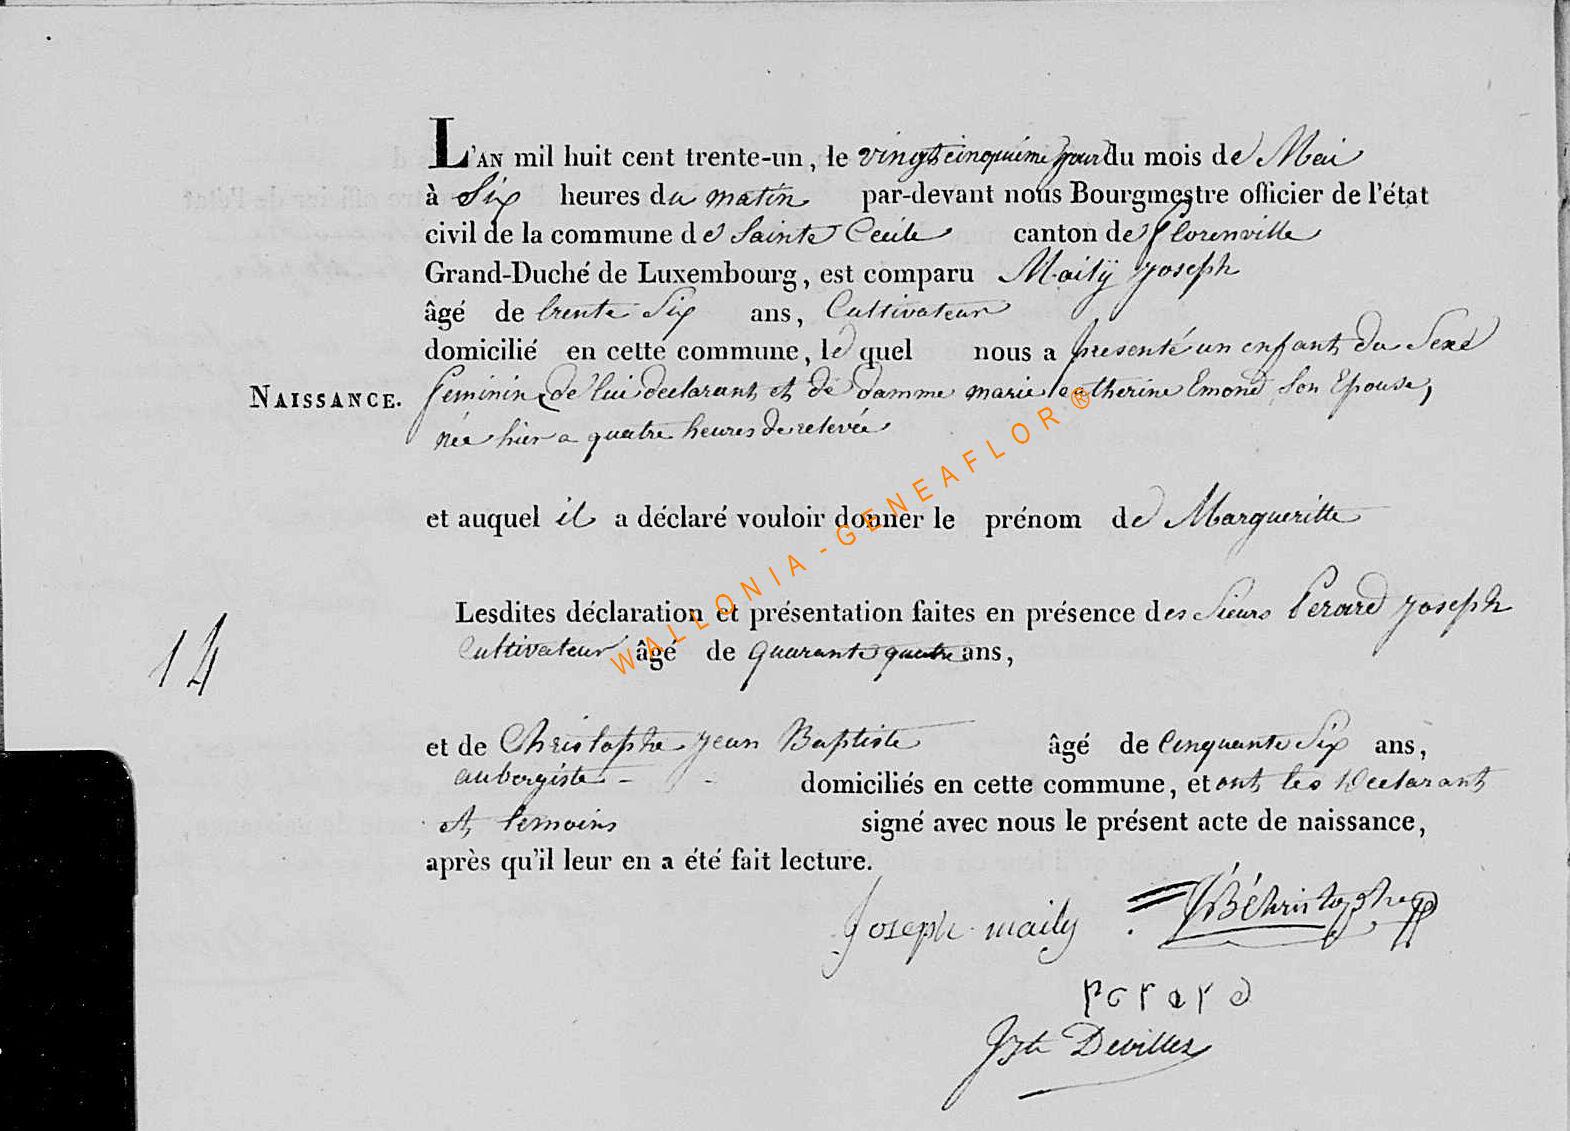 L'AN mil huit cent trente-un, le vingt cinquieme jour du mois de Mai
à Six heures du matin par-devant nous Bourgmestre officier de l'état
civil de la commune de Sainte Cecile canton de florenville
Grand-Duché de Luxembourg, est comparu Maily Joseph
âgé de trente Six ans, Cultivateur
domicilié en cette commune, le quel nous a presenté un enfant du Sexe
NAISSANCE. feminin, de lui declarant et de damme marie Catherine Emond Son Epouse,
née hier a quatre heures de relevée
et auquel il a déclaré vouloir donner le prénom de Margueritte
Lesdites déclaration et présentation faites en présence des Sieurs Perard Joseph
14
Cultivateur âgé de quarante quatre ans,
et de Christophe Jean Baptiste âgé de Cinquante Six ans,
aubergiste - - domiciliés en cette commune, et ont les declarant
et temoins signé avec nous le présent acte de naissance,
après qu'il leur en a été fait lecture.
Joseph maily JBChristophe
perard
Devillez
WALLONIA-GENEAFLOR®